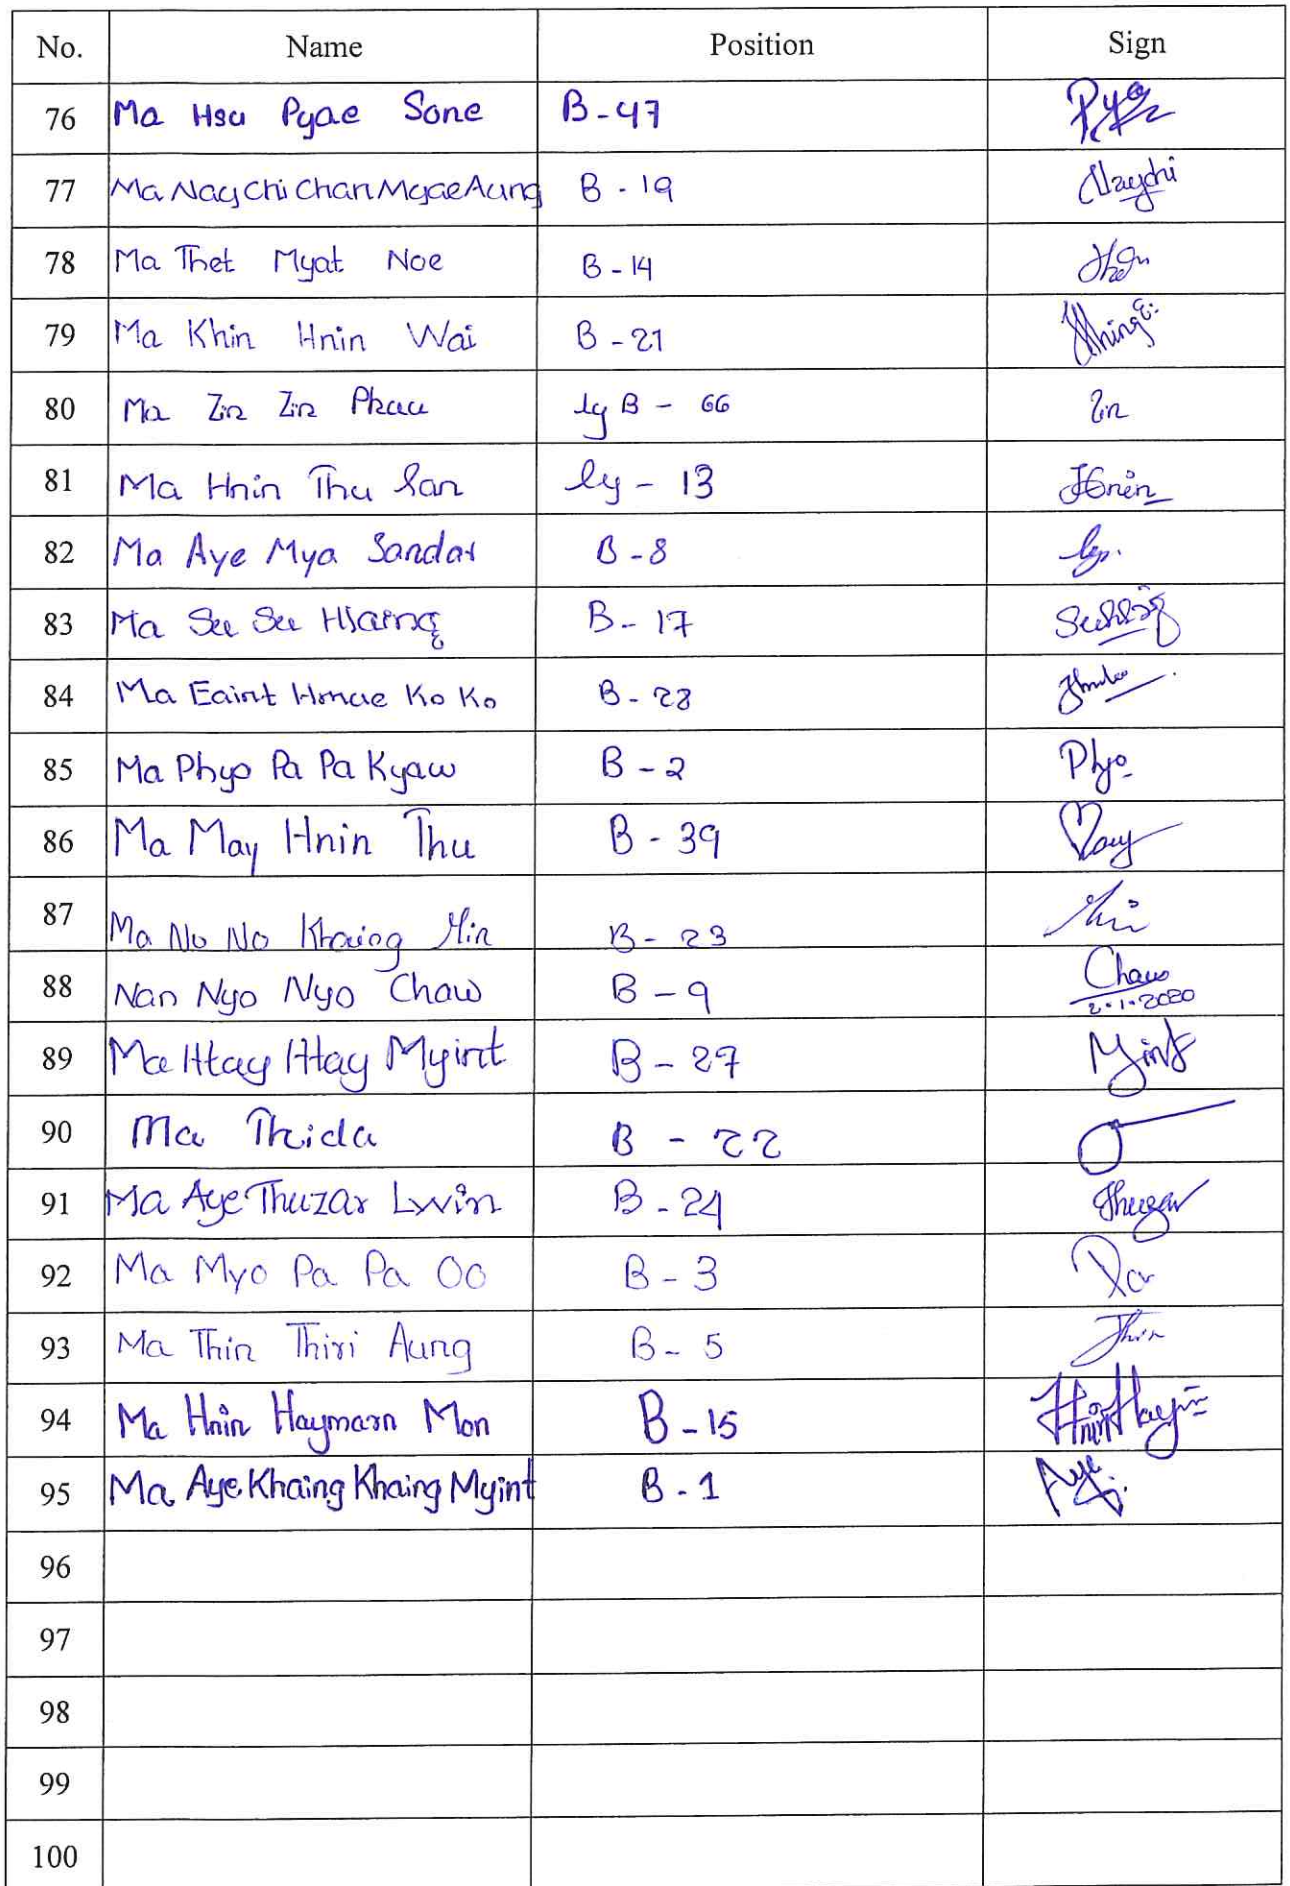 No. Name Position Sign
76 Ma Hsu Pyae Sone B-47 Pyae
77 Ma Nay Chi Chan Myae Aung B-19 Naychi
78 Ma Thet Myat Noe B-14
79 Ma Khin Hnin Wai B-21
80 Ma Zin Zin Phau ly B-66 Zin
81 Ma Hnin Thu San ly-13 Hnin
82 Ma Aye Mya Sandar B-8
83 Ma Su Su Hlaing B-17
84 Ma Eaint Hmue Ko Ko B-28
85 Ma Phyo Pa Pa Kyaw B-2 Phyo
86 Ma May Hnin Thu B-39 May
87 Ma Nu No Khaing Min B-23
88 Nan Nyo Nyo Chaw B-9 Chaw
2.1.2020
89 Ma Htay Htay Myint B-27 Myint
90 Ma Thida B-22
91 Ma Aye Thuzar Lwin B-24 Thuzar
92 Ma Myo Pa Pa Oo B-3 Pa
93 Ma Thin Thiri Aung B-5 Thin
94 Ma Hnin Haymarn Mon B-15
95 Ma Aye Khaing Khaing Myint B-1 Aye
96
97
98
99
100